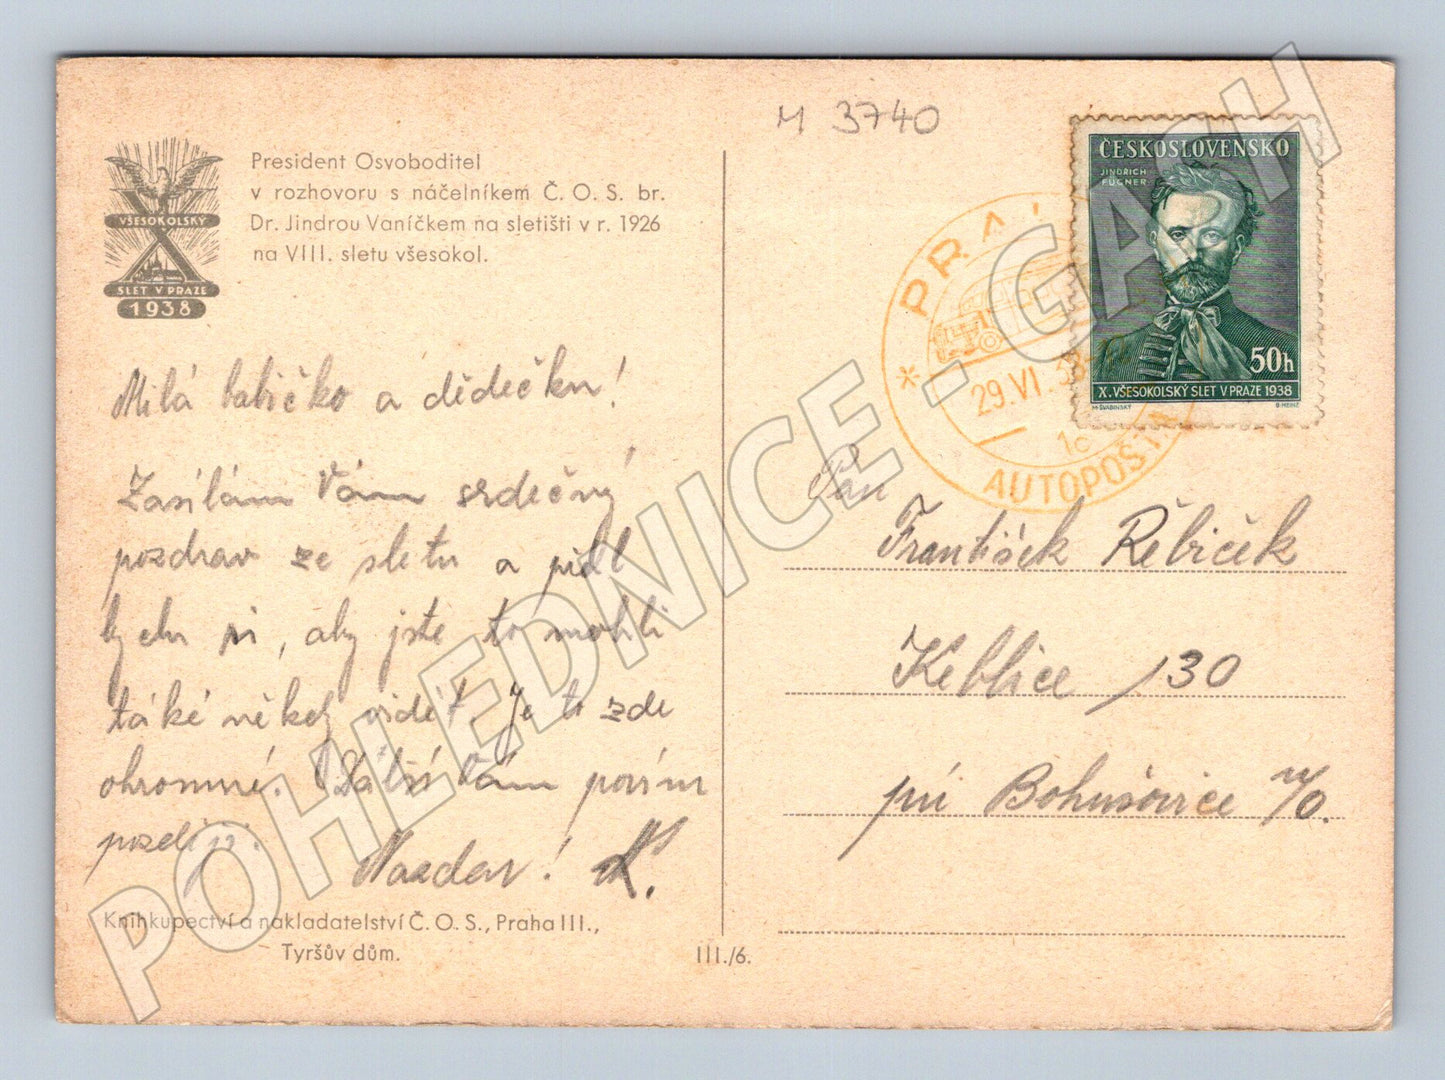 M 3740
President Osvoboditel
v rozhovoru s náčelníkem Č. O. S. br.
Dr. Jindrou Vaníčkem na sletišti v r. 1926
na VIII. sletu všesokol.
VŠESOKOLSKÝ
X
SLET V PRAZE
1938
ČESKOSLOVENSKO
JINDŘICH
FÜGNER
50h
X. VŠESOKOLSKÝ SLET V PRAZE 1938
M·ŠVABINSKÝ
B·HEINZ
PRA
29.VI.38
1c
AUTOPOŠTA
Milá babičko a dědečku!
Zasílám Vám srdečný
pozdrav ze sletu a přál
bych si, aby jste to mohli
také někdy vidět. Je to zde
ohromné. Další Vám povím
později.
Nazdar!
Pan
František Řebíček
Keblice 130
při Bohušovice n/O.
Knihkupectví a nakladatelství Č. O. S., Praha III.,
Tyršův dům.
III./6.
POHLEDNICE - GASH